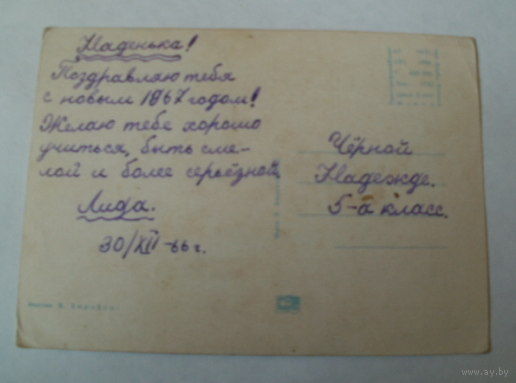 Наденька!
Поздравляю тебя
с новым 1967 годом!
Желаю тебе хорошо
учиться, быть сме-
лой и более серьёзной.
Лида.
30/XII-66 г.
Чёрной
Надежде.
5-а класс.
www.ay.by